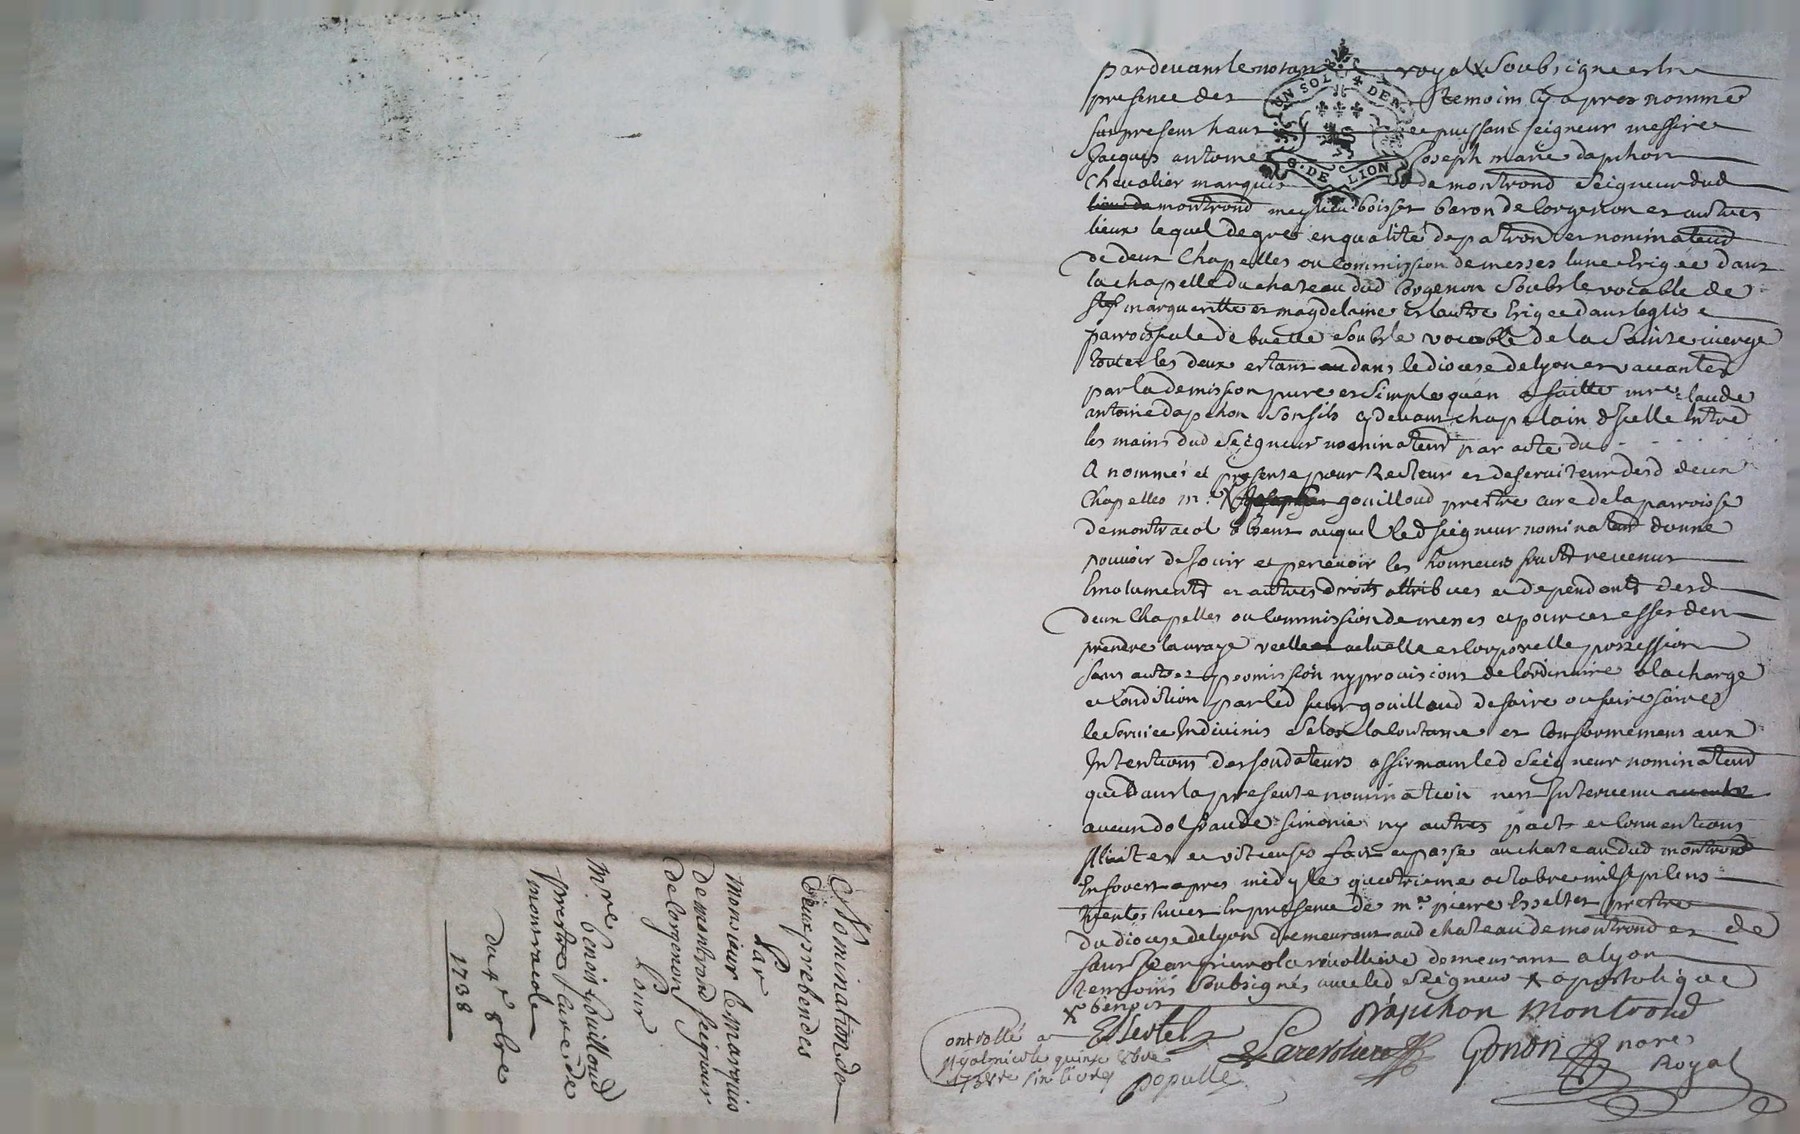 pardevant le notaire royal x soubsigne et en
presence des temoins cy apres nommé
fut present haut et puissant seigneur messire
Jacques antoine Joseph marie dapchon
Chevalier marquis de montrond seigneur dud
lieu de montrond meylieu boisset baron de Corgenon et autres
lieux lequel de gré en qualité de patron et nominateur
de deux Chapelles ou Commission de messes lune Erigée dans
la chapelle du chateau dud Corgenon soubs le vocable de
stes margueritte et magdelaine et lautre Erigee dans leglise
parroissiale de buelle soubs le vocable de la Sainte vierge
toutes les deux estant dans le diocese de lyon et vacantes
par la demission pure et simple quen a faitte mre Claude
antoine dapchon son fils cy devant chapelain dicelle Entre
les mains dud Seigneur nominateur par acte du
A nommé et presente pour Recteur et deserviteur desd deux
Chapelles mre x Joseph gouilloud prestre cure de la parroisse
de montracol absent auquel led seigneur nominateur donne
pouvoir de Jouir et percevoir les honneurs fruits revenus
Emoluments et autres droits attribues et dependants desd
deux Chapelles ou Commission de messes et pour cet effet den
prendre la vraye reelle actuelle et Corporelle possession
sans autre permission ny provisions de lordinaire a la charge
et Condition par led sieur gouilloud de faire ou faire faire
le service Indivinis selon la Coutume et Conformement aux
Intentions des fondateurs affirmant led Seigneur nominateur
que dans la presente nomination nest Intervenu
aucun dol fraude simonie ny autres pact et Conventions
Illicites et vitieuses fait et passé au chateau dud montrond
En forest apres midy le quatrieme octobre mil sept Cens
trente huict En presence de mre pierre Esseltet prestre
du diocese de lyon demeurant aud chateau de montrond et de
demeurant a lyon
temoins soubsignes avec led Seigneur x apostolique
x benoit
Dapchon Montrond
Gonon nore
Royal
controllé a
quinze 8bre
1738 Six livres
populle
Nomination de
Deux prebendes
Par
Monsieur le Marquis
De montrond seigneur
de Corgenon
Pour
Mre benoist Guilloud
prestre Curé de
montracole
Du 4e 8bre
1738
UN SOL 4 DEN.
G. DE LION